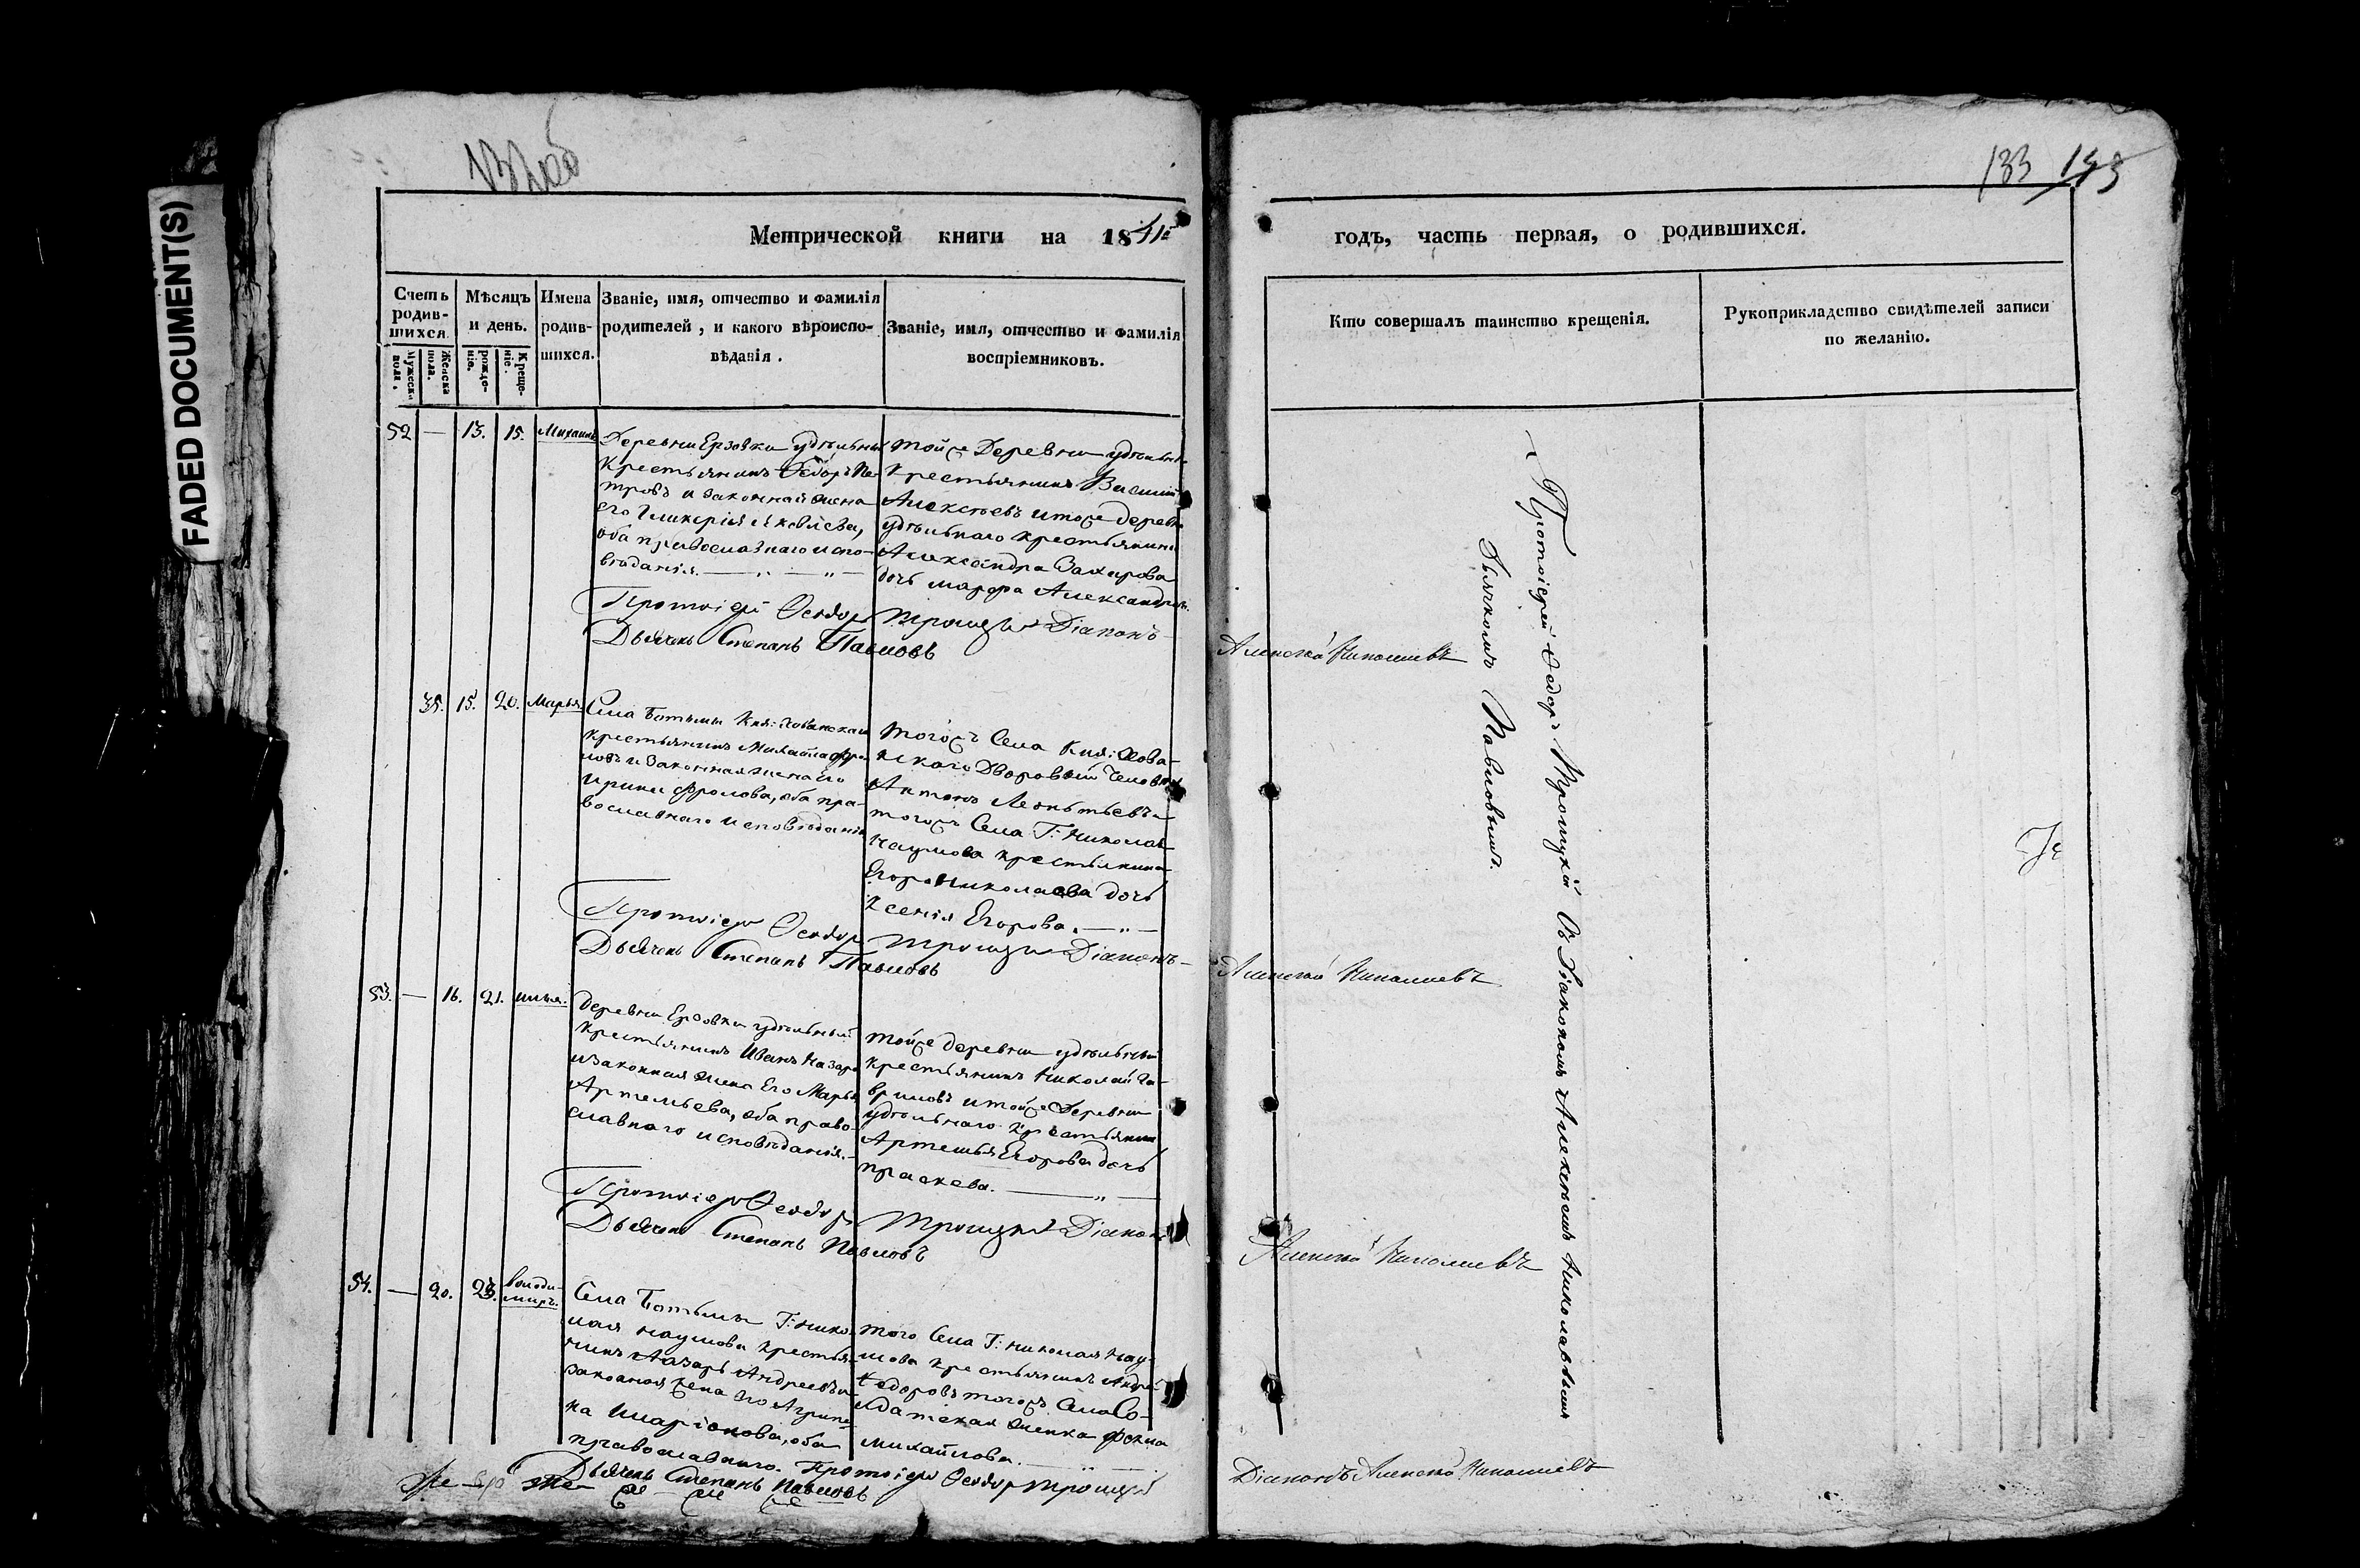 FADED DOCUMENT(S)
132об
133 145
Метрической книги на 1841й
годъ, часть первая, о родившихся.
Счетъ родив-шихся.
Мужеска пола.
Женска пола.
Мѣсяцъ и день.
рожде-нія.
Креще-ніе.
Имена родив-шихся.
Званіе, имя, отчество и фамилія
родителей, и какого вѣроиспо-
вѣданія.
Званіе, имя, отчество и фамилія
воспріемниковъ.
Кто совершалъ таинство крещенія.
Рукоприкладство свидѣтелей записи
по желанію.
52 — 13. 15. Михаилъ
Деревни Ерзовки удѣльный
Крестьянинъ Ѳедоръ Пе-
тровъ и законная жена
его Гликерія Яковлева,
оба православнаго испо-
вѣданія.
тойже Деревни удѣльный
Крестьянинъ Василій
Алексѣевъ и тоже деревни
удѣльнаго крестьянина
Александра Захарова
дочь марфа Александрова.
Протоіерей Ѳеодоръ Троицкій Діаконъ
Алексѣй Николаевъ
Дьячекъ Степанъ Павловъ
35. 15. 20. Марья
Села Ботьмы Кня: Хованскаго
крестьянинъ Михаила Фро-
ловъ и Законная жена его
Ирина Фролова, оба пра-
вославнаго исповѣданія
тогожъ Села Кня: Хова-
нскаго Дворовый Человѣкъ
Антонъ Леонтьевъ и
тогожъ Села Г: Николая
Наумова крестьянина
Егора Николаева дочь
Ксенія Егорова.
Протоіерей Ѳеодоръ Троицкій Діаконъ
Алексѣй Николаевъ
Дьячекъ Степанъ Павловъ
53. — 16. 21. Илья.
Деревни Ерзовки удѣльный
крестьянинъ Иванъ Назаро
и законная жена Его Марья
Артемьева, оба право-
славнаго исповѣданія.
тойже деревни удѣльный
крестьянинъ Николай Га-
вриловъ и тойже Деревни
удѣльнаго крестьянина
Артемья Егорова дочь
праскева.
Протоіерей Ѳеодоръ Троицкій Діаконъ
Алексѣй Николаевъ
Дьячекъ Степанъ Павловъ
54. — 20. 23. володи-
миръ.
Села Ботьмы Г: Нико-
лая Наумова крестья-
нинъ Лазарь Андреевъ и
законная жена его Агрипе-
на Иларіонова, оба
православнаго.
того Села Г: Николая Нау-
мова крестьянинъ Андрей
Ѳедоровъ тогожъ Села Со-
лдатская женка Фекла
Михайлова.
Протоіерей Ѳеодоръ Троицкій
Діаконъ Алексѣй Николаевъ
Дьячекъ Степанъ Павловъ
Протоіерей Ѳедоръ Троицкій Съ Діакономъ Алексѣемъ Николаевымъ
Дьячкомъ Павловымъ.